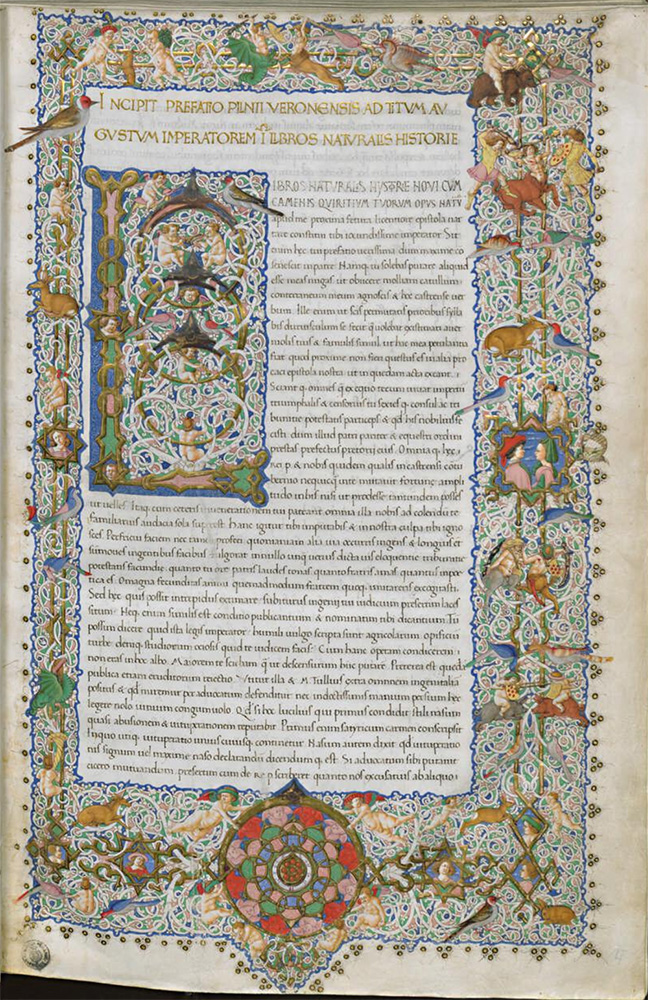 INCIPIT PREFATIO PLINII VERONENSIS AD TITVM AV
GVSTVM IMPERATOREM I LIBROS NATVRALIS HISTORIE
LIBROS NATVRALIS HYSTORE NOVI CVM
CAMENIS QVIRITIVM TVORVM OPVS NATV
apud me proxima fetura licentiore epistola nar
rare constitui tibi iocundissime imperator. Sit
enim hec tui prefatio verissima dum maximo co
senescit in patre. Namq; tu solebas putare aliquid
esse meas nugas ut obicere
agnoscis & hoc castrense ver
bum. Ille enim ut scis permutatis prioribus sylla
bis duriusculum se fecit
& famulis simul ut hec mea petulantia
fiat quod proxime non fieri questus es in alia pro
caci epistola nostra ut in quedam acta exeant.
Sciant q; omnes q ex equo tecum vivat imperiu
triumphalis & censorius tu sexies q; consul ac tri
bunitie potestatis particeps & qd his nobilius fe
cisti dum illud patri pariter & equestri ordini
prestas prefectus pretorii eius. Omnia q; hec
rei p. & nobis quidem qualis in castrensi cotu
bernio nequicq; mutavit fortune ampli
tudo in his nisi ut prodesse tantundem posses
ut velles. Itaq; cum ceteris in venerationem tui pateant omnia illa nobis ad colendu te
familiarius audacia sola superest. Hanc igitur tibi imputabis & in nostra culpa tibi igno
sces. Perfricui faciem nec tamen profeci quoniam alia via occurris ingens & longius et
summoves ingenii facibus. Fulgorat in nullo unq; verius dicta vis eloquentie tribunitie
potestatis facundie. quanto tu ore patris laudes tonas quanto fratris amas quantus in poe
tica es. O magna fecunditas animi quemadmodum fratrem quoq; imitareris excogitasti.
Sed hec quis possit intrepidus existimare subiturus ingenii tui iudicium presertim laces
situm. Neq; enim similis est conditio publicantium & nominatim tibi dicantium. Tu
possum dicere quid ista legis imperator. humili vulgo scripta sunt agricolarum opificum
turbe deniq; studiorum ociosis quid te iudicem facis. Cum hanc operam condicerem
non eras in hoc albo. Maiorem te sciebam q; ut descensurum huc putarem. Preterea est queda
publica etiam eruditorum reiectio. Utitur illa & M. Tullius extra omnem ingenii alia
positus & qd miremur per advocatum defenditur nec indoctissimis manium persium hec
legere nolo iunium congum volo. Qd si hoc lucilius qui primus condidit stili nasum
primus enim satyricum carmen conscripsit
in quo utiq; vituperatio uniuscuiusq; continetur
cicero mutuandum presertim cum de re p. scriberet quanto nos excusatius ab aliquo